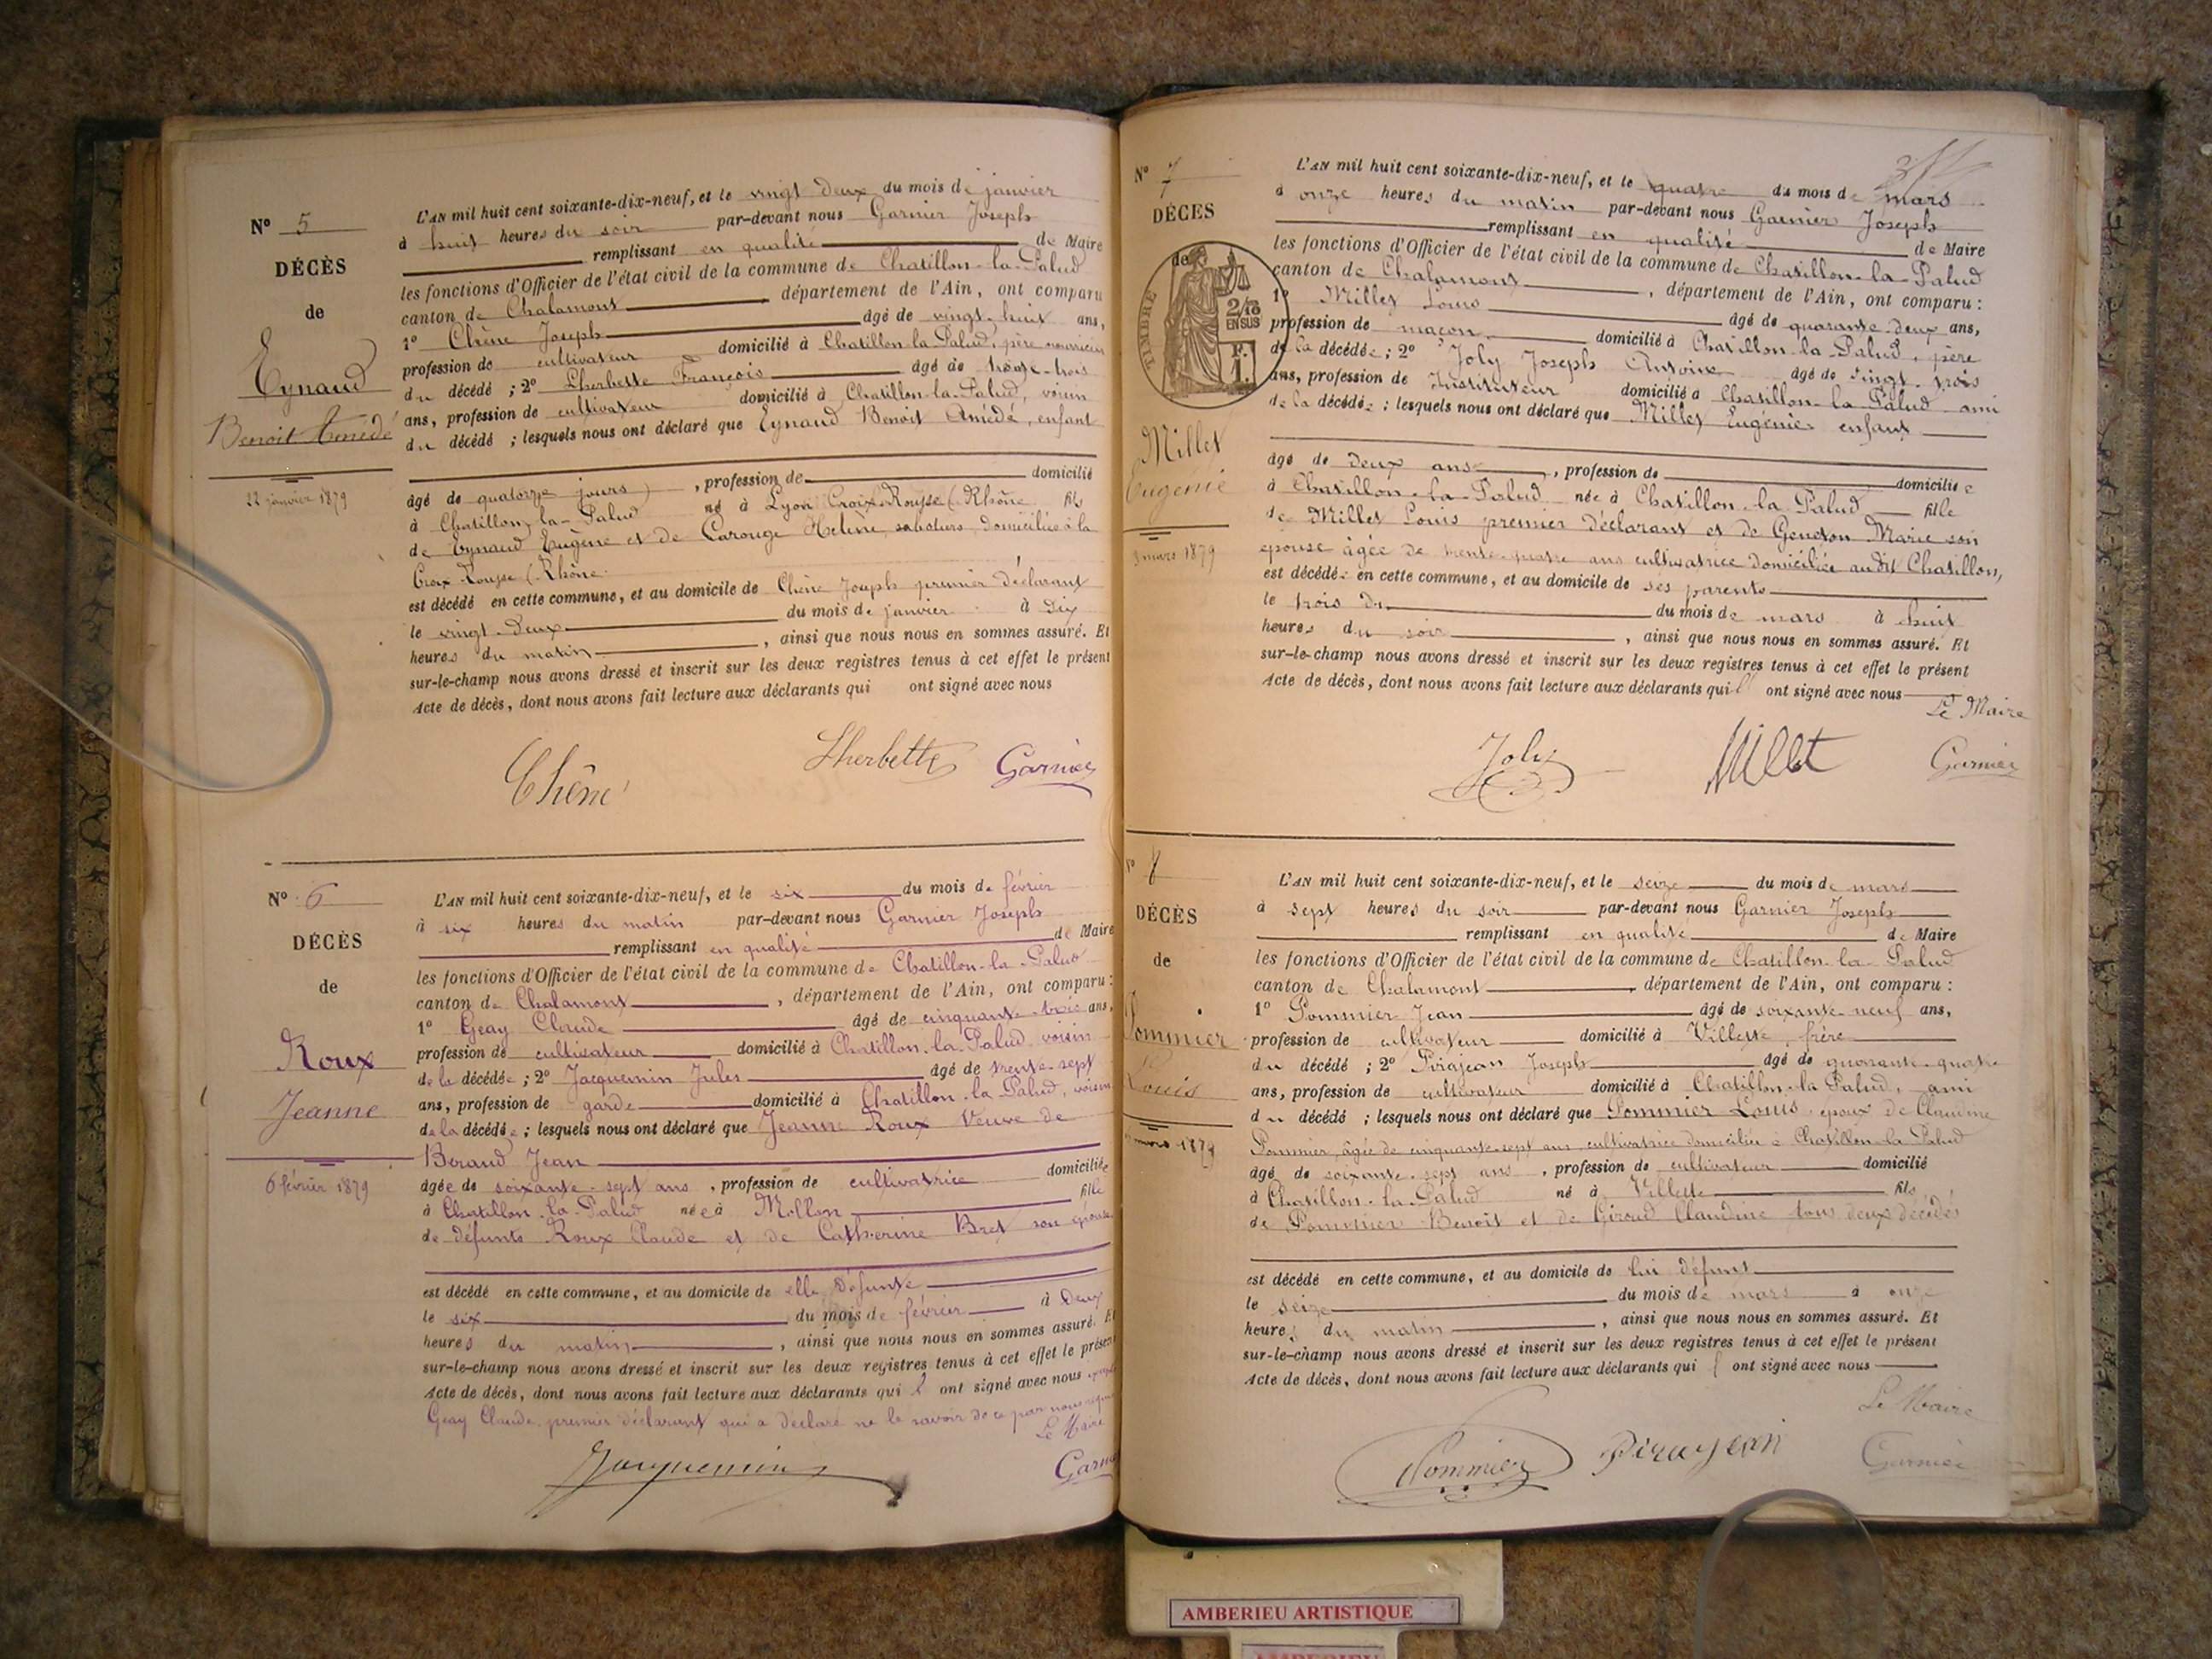 N° 5
DÉCÈS
de
Eynaud
Benoit Amédé
22 janvier 1879
L'AN mil huit cent soixante-dix-neuf, et le vingt deux du mois de janvier
à huit heures du soir par-devant nous Garnier Joseph
remplissant en qualité de Maire
les fonctions d'Officier de l'état civil de la commune de Chatillon-la-Palud
canton de Chalamont département de l'Ain, ont comparu
1° Chêne Joseph âgé de vingt-huit ans,
profession de cultivateur domicilié à Chatillon-la-Palud, père nourricier
du décédé ; 2° Lherbette François âgé de trente-trois
ans, profession de cultivateur domicilié à Chatillon-la-Palud, voisin
du décédé ; lesquels nous ont déclaré que Eynaud Benoit Amédé, enfant
âgé de quatorze jours, profession de domicilié
à Chatillon-la-Palud né à Lyon Croix-Rousse (Rhône fils
de Eynaud Eugène et de Carouge Hélène, domiciliés à la
Croix-Rousse (Rhône
est décédé en cette commune, et au domicile de Chêne Joseph premier déclarant
le vingt-deux du mois de janvier à dix
heures du matin, ainsi que nous nous en sommes assuré. Et
sur-le-champ nous avons dressé et inscrit sur les deux registres tenus à cet effet le présent
Acte de décès, dont nous avons fait lecture aux déclarants qui ont signé avec nous
Chêne Lherbette Garnier
N° 6
DÉCÈS
de
Roux
Jeanne
6 février 1879
L'AN mil huit cent soixante-dix-neuf, et le six du mois de février
à six heures du matin par-devant nous Garnier Joseph
remplissant en qualité de Maire
les fonctions d'Officier de l'état civil de la commune de Chatillon-la-Palud
canton de Chalamont, département de l'Ain, ont comparu :
1° Geay Claude âgé de cinquante-trois ans,
profession de cultivateur domicilié à Chatillon-la-Palud voisin
de la décédée ; 2° Jacquemin Jules âgé de trente-sept
ans, profession de garde domicilié à Chatillon-la-Palud, voisin
de la décédée ; lesquels nous ont déclaré que Jeanne Roux Veuve de
Beraud Jean
âgée de soixante-sept ans, profession de cultivatrice domiciliée
à Chatillon-la-Palud née à Mollon fille
de défunts Roux Claude et de Catherine Bret son épouse
est décédé en cette commune, et au domicile de elle défunte
le six du mois de février à deux
heures du matin, ainsi que nous nous en sommes assuré. Et
sur-le-champ nous avons dressé et inscrit sur les deux registres tenus à cet effet le présent
Acte de décès, dont nous avons fait lecture aux déclarants qui l' ont signé avec nous
Geay Claude premier déclarant qui a déclaré ne le savoir de ce par nous requis
Le Maire
Jacquemin Garnier
N° 7
DÉCÈS
de
TIMBRE
2/10
EN SUS
F.
1.
Millet
Eugénie
3 mars 1879
L'AN mil huit cent soixante-dix-neuf, et le quatre du mois de mars
à onze heures du matin par-devant nous Garnier Joseph
remplissant en qualité de Maire
les fonctions d'Officier de l'état civil de la commune de Chatillon-la-Palud
canton de Chalamont, département de l'Ain, ont comparu :
1° Millet Louis âgé de quarante-deux ans,
profession de maçon domicilié à Chatillon-la-Palud, père
de la décédée ; 2° Joly Joseph Antoine âgé de vingt-trois
ans, profession de Instituteur domicilié à Chatillon-la-Palud ami
de la décédée ; lesquels nous ont déclaré que Millet Eugénie enfant
âgé de deux ans, profession de domiciliée
à Chatillon-la-Palud née à Chatillon-la-Palud fille
de Millet Louis premier déclarant et de Geneton Marie son
épouse âgée de trente-quatre ans cultivatrice domiciliée audit Chatillon,
est décédée en cette commune, et au domicile de ses parents
le trois du du mois de mars à huit
heures du soir, ainsi que nous nous en sommes assuré. Et
sur-le-champ nous avons dressé et inscrit sur les deux registres tenus à cet effet le présent
Acte de décès, dont nous avons fait lecture aux déclarants qui l' ont signé avec nous
Le Maire
Joly Millet Garnier
N° 8
DÉCÈS
de
Pommier
Louis
mars 1879
L'AN mil huit cent soixante-dix-neuf, et le seize du mois de mars
à sept heures du soir par-devant nous Garnier Joseph
remplissant en qualité de Maire
les fonctions d'Officier de l'état civil de la commune de Chatillon-la-Palud
canton de Chalamont, département de l'Ain, ont comparu :
1° Pommier Jean âgé de soixante-neuf ans,
profession de cultivateur domicilié à Villette, frère
du décédé ; 2° Pirajean Joseph âgé de quarante-quatre
ans, profession de cultivateur domicilié à Chatillon-la-Palud, ami
du décédé ; lesquels nous ont déclaré que Pommier Louis époux de Claudine
Pommier, âgée de cinquante-sept ans, cultivatrice domiciliée à Chatillon-la-Palud
âgé de soixante-sept ans, profession de cultivateur domicilié
à Chatillon-la-Palud né à Villette fils
de Pommier Benoit et de Giroud Claudine tous deux décédés
est décédé en cette commune, et au domicile de lui défunt
le seize du mois de mars à onze
heures du matin, ainsi que nous nous en sommes assuré. Et
sur-le-champ nous avons dressé et inscrit sur les deux registres tenus à cet effet le présent
Acte de décès, dont nous avons fait lecture aux déclarants qui l' ont signé avec nous
Le Maire
Pommier Pirajean Garnier
AMBERIEU ARTISTIQUE
AMBERIEU